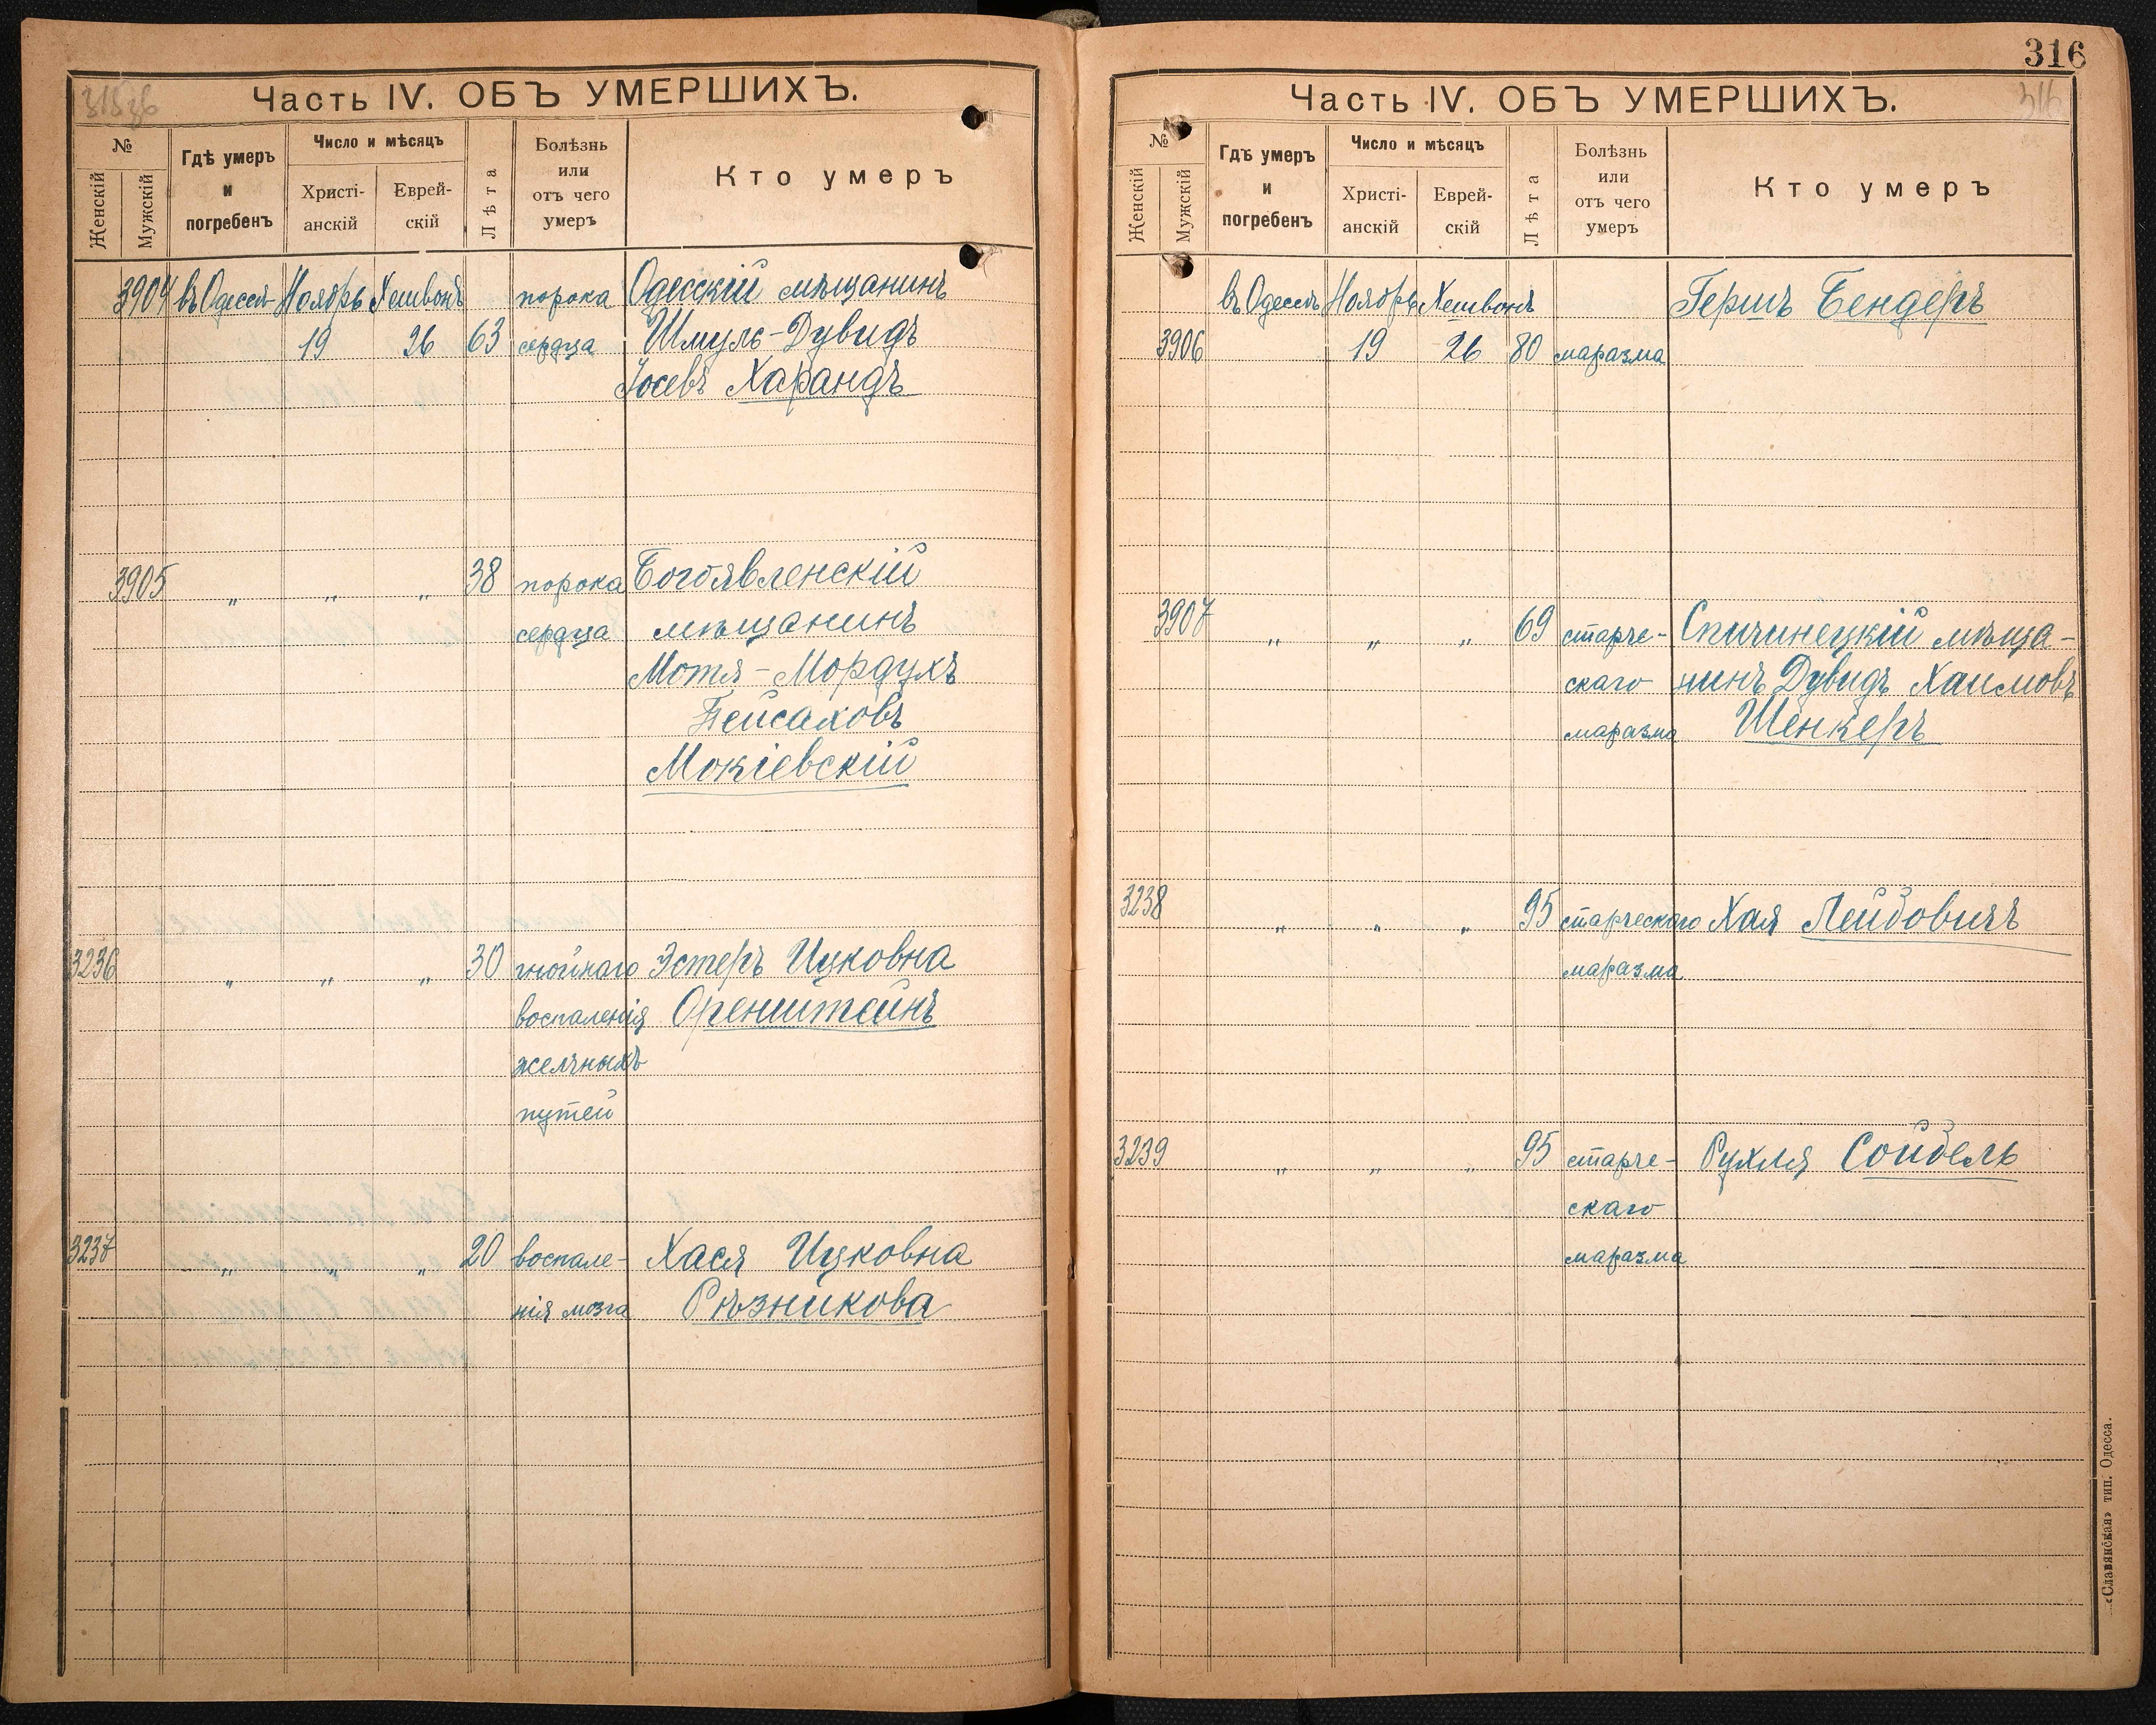 315 об
Часть IV. ОБЪ УМЕРШИХЪ.
№
Женскій
Мужскій
Гдѣ умеръ
и
погребенъ
Число и мѣсяцъ
Христі-
анскій
Еврей-
скій
Лѣта
Болѣзнь
или
отъ чего
умеръ
Кто умеръ
3904 въ Одессѣ Ноябрь Хешвонъ порока Одесскій мѣщанинъ
19 26 63 сердца Шмуль-Дувидъ
Іосевъ Харандъ
3905 „ „ „ 38 порока Богоявленскій
сердца мѣщанинъ
Мотя-Мордухъ
Пейсаховъ
Мокіевскій
3236 „ „ „ 30 гнойнаго Эстеръ Ицковна
воспаленія Оренштейнъ
желчныхъ
путей
3237 „ „ „ 20 воспале- Хася Ицковна
нія мозга Рѣзникова
316
316
Часть IV. ОБЪ УМЕРШИХЪ.
№
Женскій
Мужскій
Гдѣ умеръ
и
погребенъ
Число и мѣсяцъ
Христі-
анскій
Еврей-
скій
Лѣта
Болѣзнь
или
отъ чего
умеръ
Кто умеръ
въ Одессѣ Ноябрь Хешвонъ Гершъ Бендеръ
3906 19 26 80 маразма
3907 „ „ „ 69 старче- Спичинецкій мѣща-
скаго нинъ Дувидъ Хаимовъ
маразма Шенкеръ
3238 „ „ „ 95 старческаго Хая Лейбовичъ
маразма
3239 „ „ „ 95 старче- Рухля Сойбель
скаго
маразма
«Славянская» тип. Одесса.